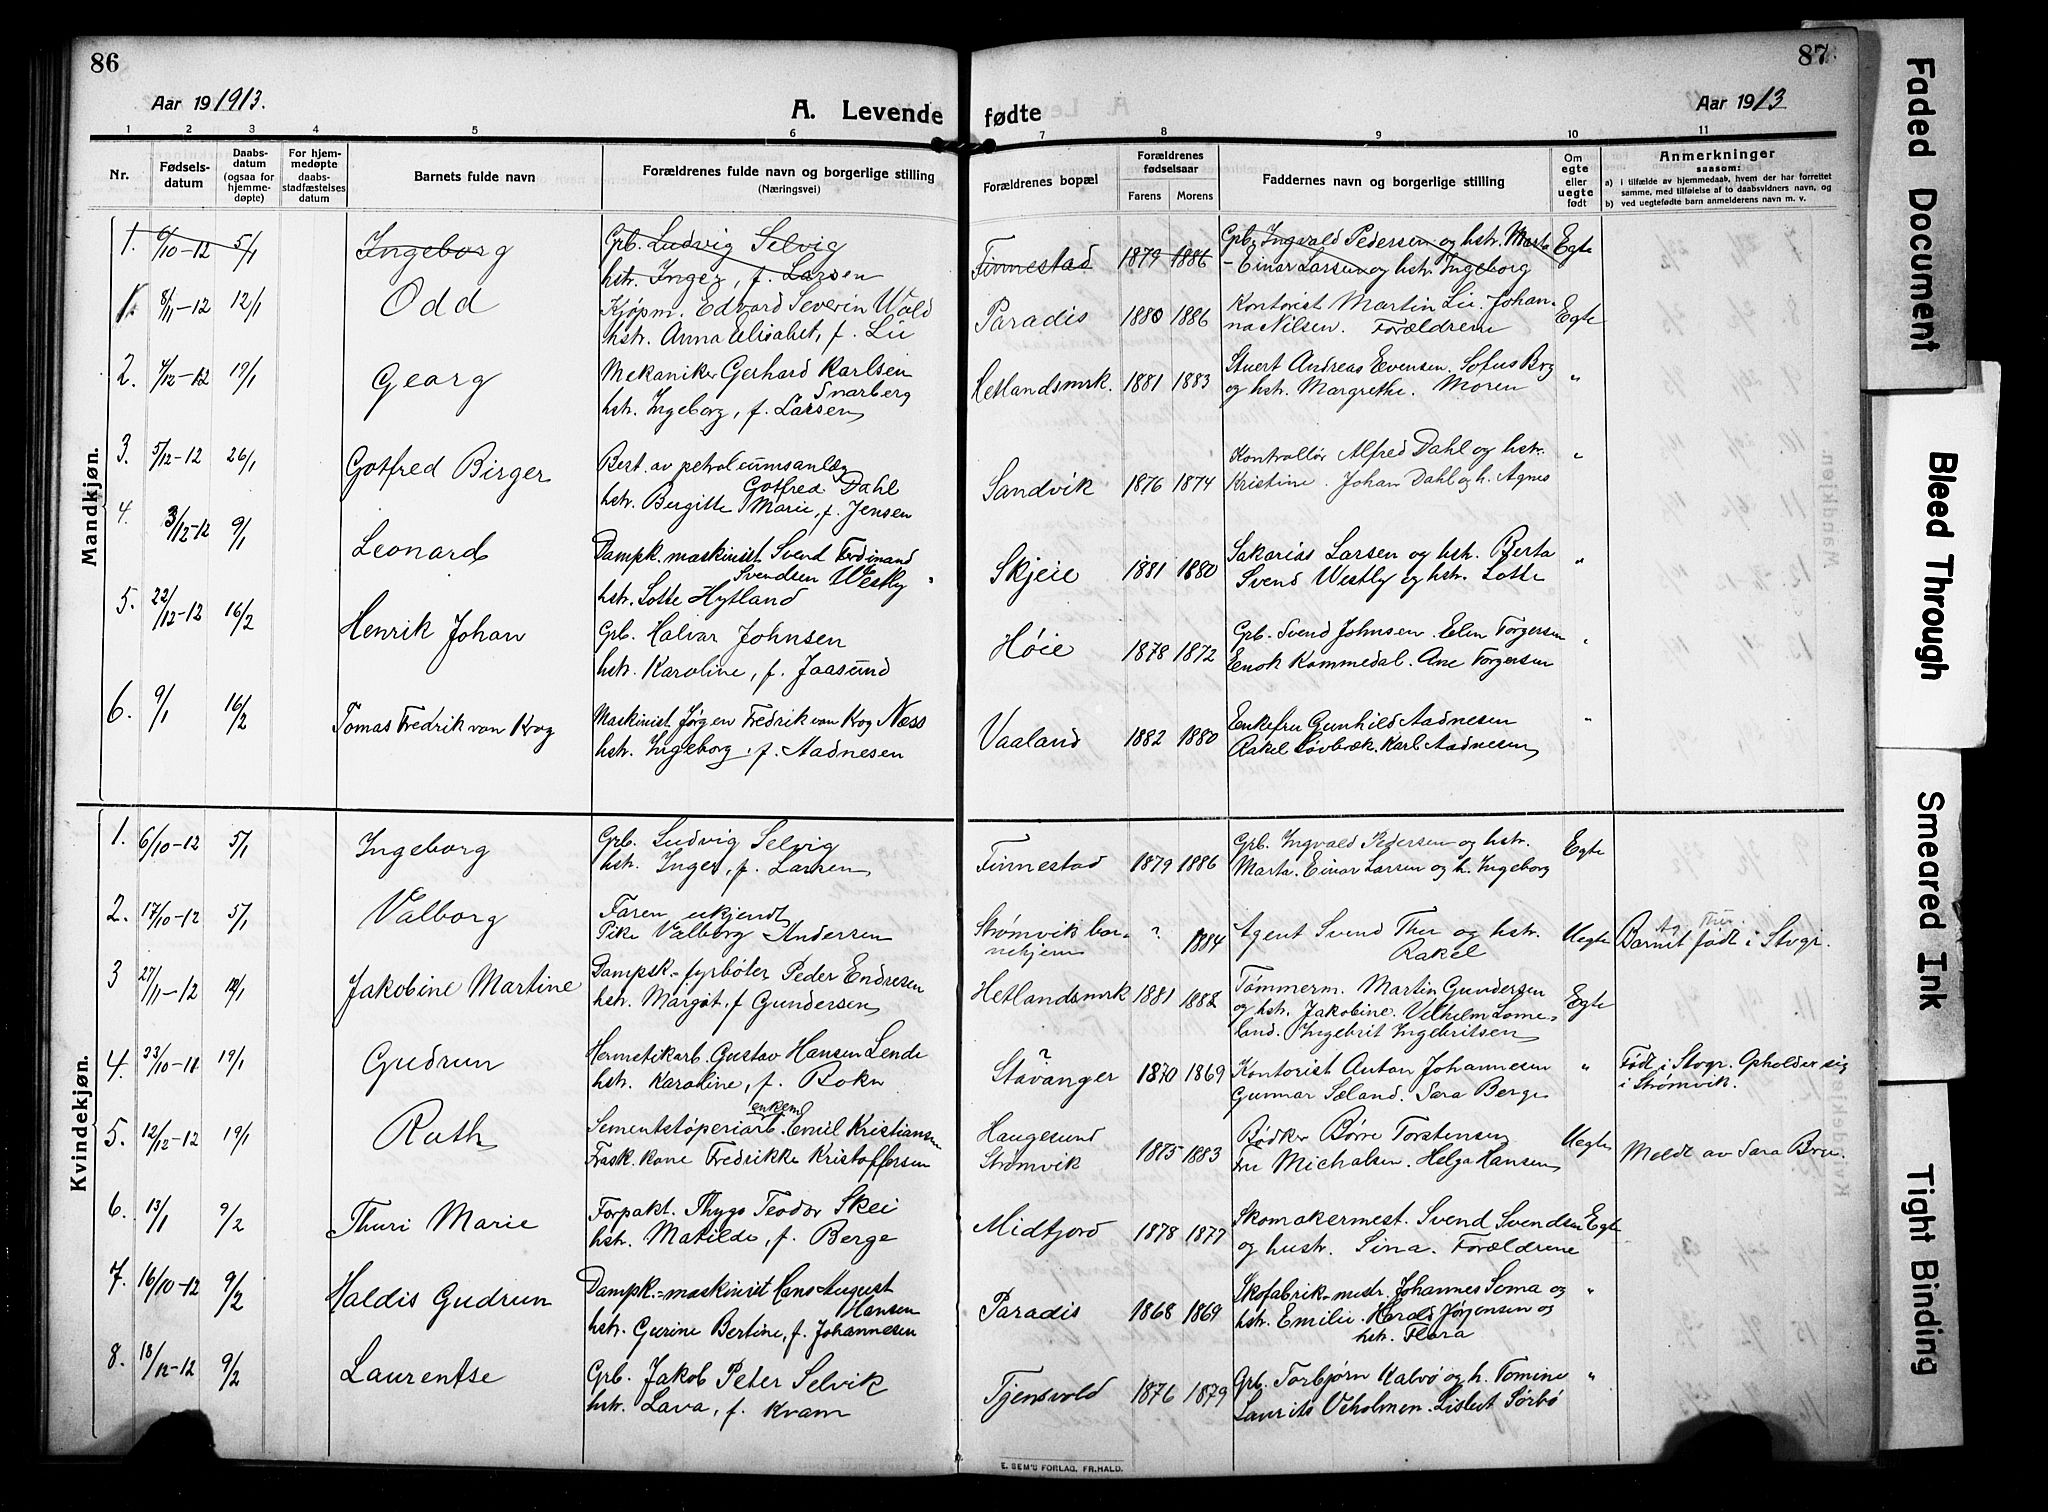 86
Aar 191913.
A. Levende
1 2 3 4 5 6
Nr.
Fødsels-
datum
Daabs-
datum
(ogsaa for
hjemme-
døpte)
For hjem-
medøpte
daabs-
stadfæstelses
datum
Barnets fulde navn
Forældrenes fulde navn og borgerlige stilling
(Næringsvei)
Mandkjøn.
1. 6/10-12 5/1 Ingeborg Grb. Ludvig Selvig
hstr. Inger, f. Larsen
1. 8/11-12 12/1 Odd Kjøpm. Edvard Severin Wold
hstr. Anna Elisabet, f. Lie
2. 4/12-12 19/1 Georg Mekaniker Gerhard Karlsen
Snarberg
hstr. Ingeborg, f. Larsen
3. 5/12-12 26/1 Gotfred Birger Best. av petroleumsanlæg
Gotfred Dahl
hstr. Birgitte Marie, f. Jensen
4. 3/12-12 9/1 Leonard Dampk. maskinist Svend Ferdinand
Svendsen Westby
hstr. Lotte Hytland
5. 22/12-12 16/2 Henrik Johan Grb. Halvar Johnsen
hstr. Karoline, f. Jaasund
6. 9/1 16/2 Tomas Fredrik van Krog Maskinist Jørgen Fredrik van Krog Næss
hstr. Ingeborg, f. Aadnesen
Kvindekjøn.
1. 6/10-12 5/1 Ingeborg Grb. Ludvig Selvig
hstr. Inger, f. Larsen
2. 17/10-12 5/1 Valborg Faren ukjendt
Pike Valborg Andersen
3 27/11-12 12/1 Jakobine Martine Dampsk.-fyrbøter Peder Endresen
hstr. Margit, f. Gundersen
4. 23/10-11 19/1 Gudrun Hermetikarb. Gustav Hansen Lende
hstr. Karoline, f. Bokn
5. 12/12-12 19/1 Ruth Sementstøperiarb. enkem. Emil Kristiansen
Frask. kone Fredrikke Kristoffersen
6. 13/1 9/2 Thuri Marie Forpakt. Thygo Teodor Skei
hstr. Matilde, f. Berge
7. 16/10-12 9/2 Haldis Gudrun Dampk.-maskinist Hans August
Hansen
hstr. Gurine Bertine, f. Johannesen
8. 18/12-12 9/2 Laurentse Grb. Jakob Peter Selvik
hstr. Lava, f. Kvam
87
Aar 1913
fødte
7 8 9 10 11
Forældrenes bopæl
Forældrenes
fødselsaar
Farens Morens
Faddernes navn og borgerlige stilling
Om
egte
eller
uegte
født
Anmerkninger
saasom:
a) i tilfælde av hjemmedaab, hvem der har forrettet
samme, med tilføielse af to daabsvidners navn, og
b) ved uegtefødte barn anmelderens navn m. v.
Finnestad 1879 1886 Grb. Ingvald Pedersen og hstr. Marta Egte
- Einar Larsen og hstr. Ingeborg
Paradis 1880 1886 Kontorist Martin Lie. Johan- Egte
na Nilsen. Forældrene
Hetlandsmrk. 1881 1883 Stuert Andreas Evensen. Sofus Bog "
og hstr. Margrethe. Moren
Sandvik 1876 1874 Kontrollør Alfred Dahl og hstr. "
Kristine. Johan Dahl og h. Agnes
Skjeie 1881 1880 Sakarias Larsen og hstr. Berta "
Svend Westby og hstr. Lotte
Høie 1878 1872 Grb. Svend Johnsen. Elen Torgersen "
Enok Kommedal. Ane Torgersen
Vaaland 1882 1880 Enkefru Gunhild Aadnesen "
Rakel Løvbræk. Karl Aadnesen
Finnestad 1879 1886 Grb. Ingvald Pedersen og hstr. Egte
Marta. Einar Larsen og h. Ingeborg
Strømvik bar-
nehjem ? 1884 Agent Svend Thu og hstr. Uegte Barnet født i Stvgr.
Rakel
Ag. Thu.
Hetlandsmrk 1881 1888 Tømmerm. Martin Gundersen Egte
og hstr. Jakobine. Vilhelm Lome-
land. Ingebrit Ingebritsen
?
Stavanger 1870 1869 Kontorist Anton Johannesen " Født i Stvgr. Opholder sig
Gunnar Sæland. Sara Berge i Strømvik.
Haugesund
Strømvik 1875 1883 Bødker Børre Torstensen Uegte Meldt av Sara Bru.
Fru Michalsen. Helga Hansen
Midtjord 1878 1877 Skomakermest. Svend Svendsen Egte
og hustr. Sina. Forældrene
Paradis 1868 1869 Skofabrik-mestr. Johannes Soma og "
hstr. Emilie. Harald Jørgensen og
hstr. Flora
Tjensvold 1876 1879 Grb. Torbjørn Kalvø og h. Tomine "
Laurits Veholmen. Lisbet Sørbø
E. SEM'S FORLAG, FR.HALD.
Faded Document
Bleed Through
Smeared Ink
Tight Binding